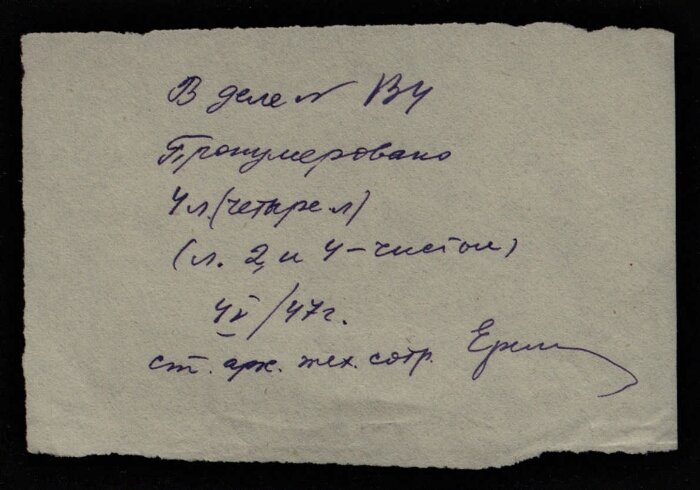 В деле № В4
Пронумеровано
4 л. (четыре л)
(л. 2 и 4 - чистые)
4 V/47 г.
ст. арх. тех. сотр.